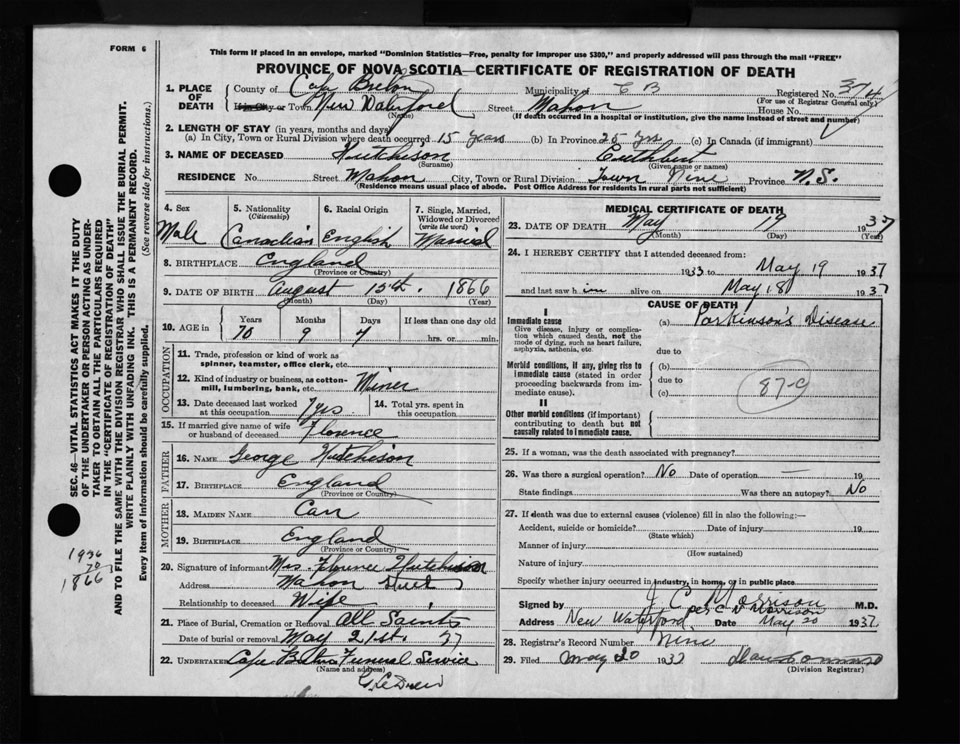 FORM 6
This form if placed in an envelope, marked "Dominion Statistics—Free, penalty for improper use $300," and properly addressed will pass through the mail "FREE"
PROVINCE OF NOVA SCOTIA—CERTIFICATE OF REGISTRATION OF DEATH
1. PLACE OF DEATH
County of Cape Breton Municipality of C B Registered No. 374
(For use of Registrar General only)
In City or Town New Waterford Street Mahon House No.
(Name) (If death occurred in a hospital or institution, give the name instead of street and number)
2. LENGTH OF STAY (in years, months and days)
(a) In City, Town or Rural Division where death occurred 15 years (b) In Province 25 yrs (c) In Canada (if immigrant)
3. NAME OF DECEASED Hutcheson Cuthbert
(Surname) (Given name or names)
RESIDENCE No. Street Mahon City, Town or Rural Division Town Nine Province N.S.
(Residence means usual place of abode. Post Office Address for residents in rural parts not sufficient)
4. Sex Male
5. Nationality (Citizenship) Canadian
6. Racial Origin English
7. Single, Married, Widowed or Divorced (write the word) Married
8. BIRTHPLACE England
(Province or Country)
9. DATE OF BIRTH August 15th. 1866
(Month) (Day) (Year)
10. AGE in Years Months Days If less than one day old
70 9 4 hrs. or min.
OCCUPATION
11. Trade, profession or kind of work as spinner, teamster, office clerk, etc.
12. Kind of industry or business, as cotton-mill, lumbering, bank, etc. Miner
13. Date deceased last worked at this occupation 7 yrs
14. Total yrs. spent in this occupation
15. If married give name of wife or husband of deceased Florence
FATHER
16. NAME George Hutcheson
17. BIRTHPLACE England
(Province or Country)
MOTHER
18. MAIDEN NAME Carr
19. BIRTHPLACE England
(Province or Country)
20. Signature of informant Mrs. Florence Hutcheson
Address Mahon Street
Relationship to deceased Wife
21. Place of Burial, Cremation or Removal All Saints
Date of burial or removal May 21st. 37
22. UNDERTAKER Cape Breton Funeral Service
(Name and address)
MEDICAL CERTIFICATE OF DEATH
23. DATE OF DEATH May 19 1937
(Month) (Day) (Year)
24. I HEREBY CERTIFY that I attended deceased from:
1933 to May 19 1937
and last saw him alive on May 18 1937
CAUSE OF DEATH
I
Immediate cause (a) Parkinson's Disease
Give disease, injury or complication which caused death, not the mode of dying, such as heart failure, asphyxia, asthenia, etc.
due to
Morbid conditions, if any, giving rise to immediate cause (stated in order proceeding backwards from immediate cause).
(b)
due to
(c)
87-c
II
Other morbid conditions (if important) contributing to death but not causally related to immediate cause.
25. If a woman, was the death associated with pregnancy?
26. Was there a surgical operation? No Date of operation — 19
State findings Was there an autopsy? No
27. If death was due to external causes (violence) fill in also the following:—
Accident, suicide or homicide? Date of injury 19
(State which)
Manner of injury
(How sustained)
Nature of injury
Specify whether injury occurred in industry, in home, or in public place
Signed by J. C. Morrison M.D.
per C V Morrison
Address New Waterford Date May 20 1937
28. Registrar's Record Number Nine
29. Filed May 20 1937
(Division Registrar)
SEC. 46—VITAL STATISTICS ACT MAKES IT THE DUTY
OF THE UNDERTAKER OR PERSON ACTING AS UNDER-
TAKER TO OBTAIN ALL THE PARTICULARS REQUIRED
IN THE "CERTIFICATE OF REGISTRATION OF DEATH"
AND TO FILE THE SAME WITH THE DIVISION REGISTRAR WHO SHALL ISSUE THE BURIAL PERMIT.
WRITE PLAINLY WITH UNFADING INK. THIS IS A PERMANENT RECORD.
Every item of information should be carefully supplied. (See reverse side for instructions.)
1936
70
1866